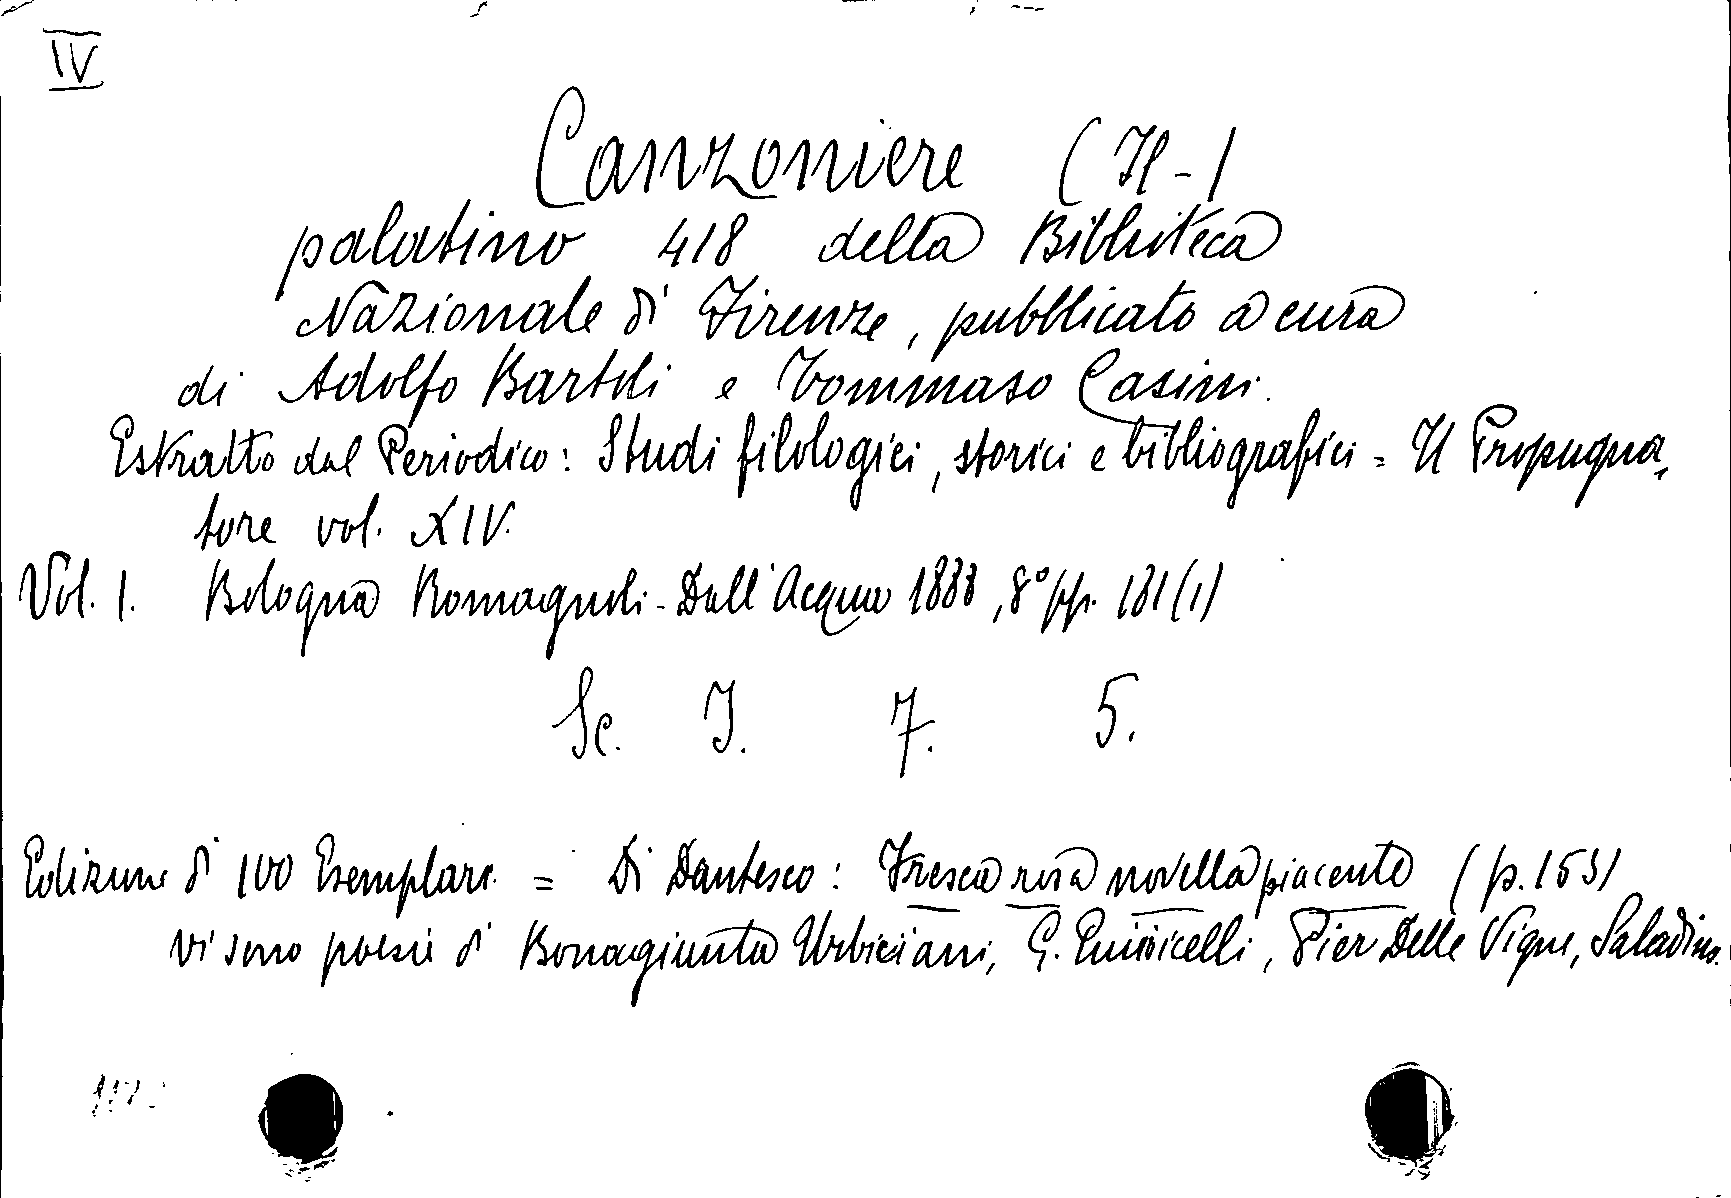 IV
Canzoniere (Il-)
palatino 418 della Biblioteca
Nazionale di Firenze, pubblicato a cura
di Adolfo Bartoli e Tommaso Casini.
Estratto dal Periodico: Studi filologici, storici e bibliografici = Il Propugna,
tore vol. XIV.
Vol. 1. Bologna Romagnoli-Dall'Acqua 1888, 8° pp. 181(1)
Sc. I. 7. 5.
Edizione di 100 Esemplari = Di Dantesco: Fresca rosa novella piacente (p. 153)
vi sono poesie di Bonagiunta Urbiciani, G. Guinicelli, Pier Delle Vigne, Saladino.